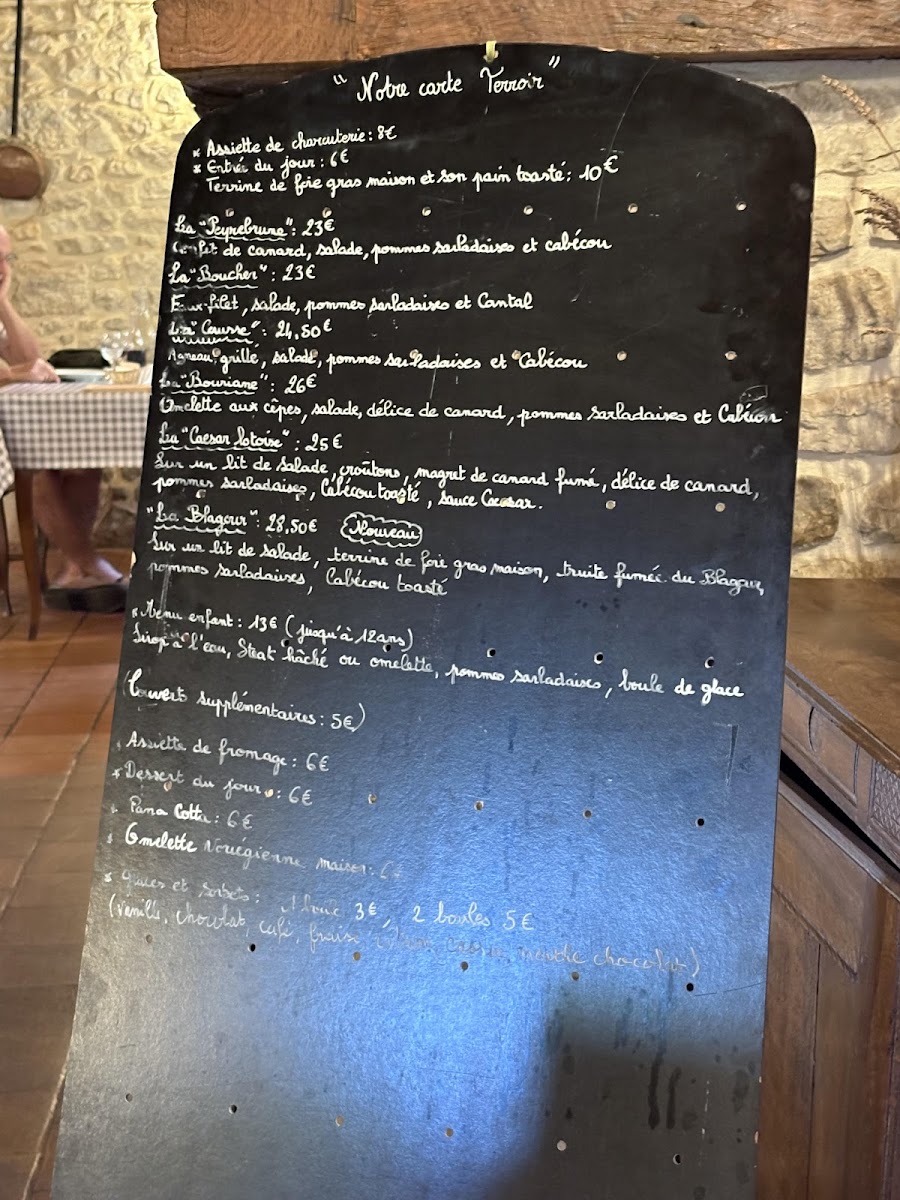 "Notre carte Terroir"
* Assiette de charcuterie : 8€
* Entrée du jour : 6€
Terrine de foie gras maison et son pain toasté : 10€
La "Peyrebrune" : 23€
Confit de canard, salade, pommes sarladaises et cabécou
La "Boucher" : 23€
Faux-filet, salade, pommes sarladaises et Cantal
La "Causse" : 24,50€
Agneau grillé, salade, pommes sarladaises et Cabécou
La "Bouriane" : 26€
Omelette aux cêpes, salade, délice de canard, pommes sarladaises et Cabécou
La "Caesar lotoise" : 25€
Sur un lit de salade, croûtons, magret de canard fumé, délice de canard,
pommes sarladaises, Cabécou toasté, sauce Caesar.
"La Blagour" : 28,50€ Nouveau
Sur un lit de salade, terrine de foie gras maison, truite fumée du Blagour,
pommes sarladaises, Cabécou toasté
* Menu enfant : 13€ (jusqu'à 12 ans)
Sirop à l'eau, Steak hâché ou omelette, pommes sarladaises, boule de glace
(Couverts supplémentaires : 5€)
* Assiette de fromage : 6€
* Dessert du jour : 6€
* Pana Cotta : 6€
* Omelette Norvégienne maison : 6€
* Glaces et Sorbets : 1 boule 3€, 2 boules 5€
(Vanille, chocolat, café, fraise, menthe chocolat)